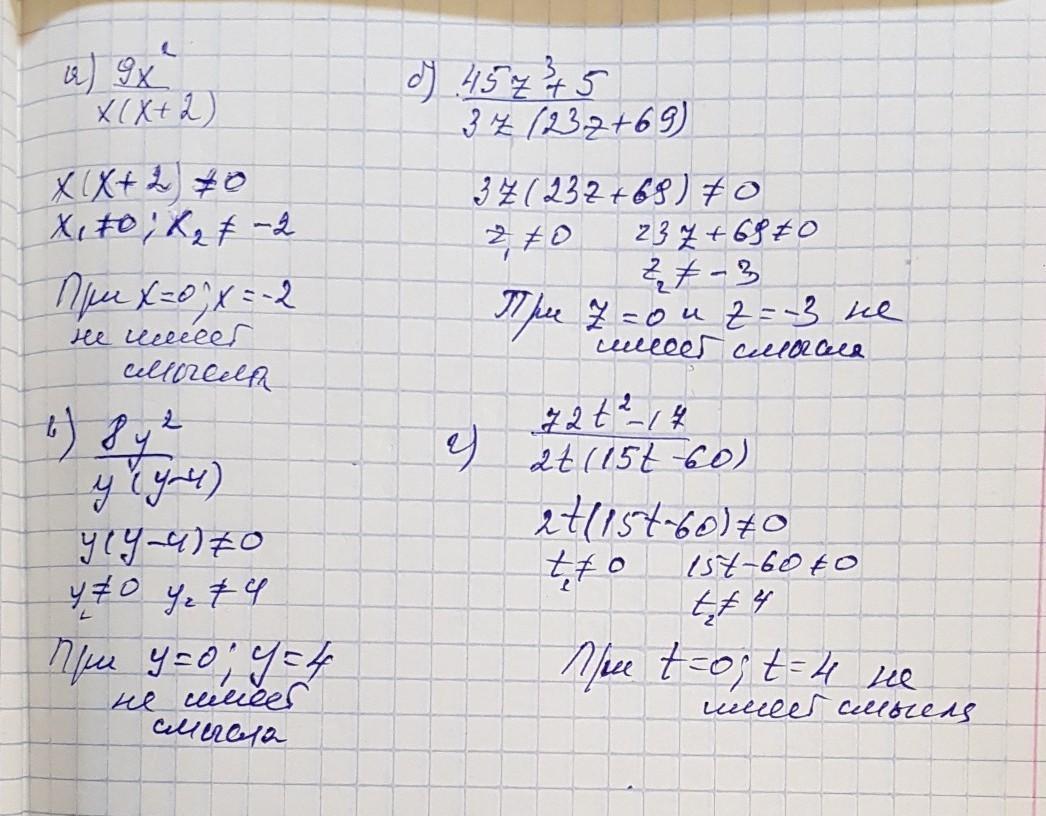 а) 9x²
x(x+2)
x(x+2) ≠0
x₁≠0; x₂ ≠ -2
При x=0; x=-2
не имеет
смысла
б) 45z³+5
3z(23z+69)
3z(23z+69) ≠0
z₁ ≠0 23z+69≠0
z₂ ≠ -3
При z=0 и z=-3 не
имеет смысла
в) 8y²
y(y-4)
y(y-4)≠0
y₁≠0 y₂ ≠4
При y=0; y=4
не имеет
смысла
г) 72t²-17
2t(15t-60)
2t(15t-60)≠0
t₁≠0 15t-60≠0
t₂≠4
При t=0; t=4 не
имеет смысла